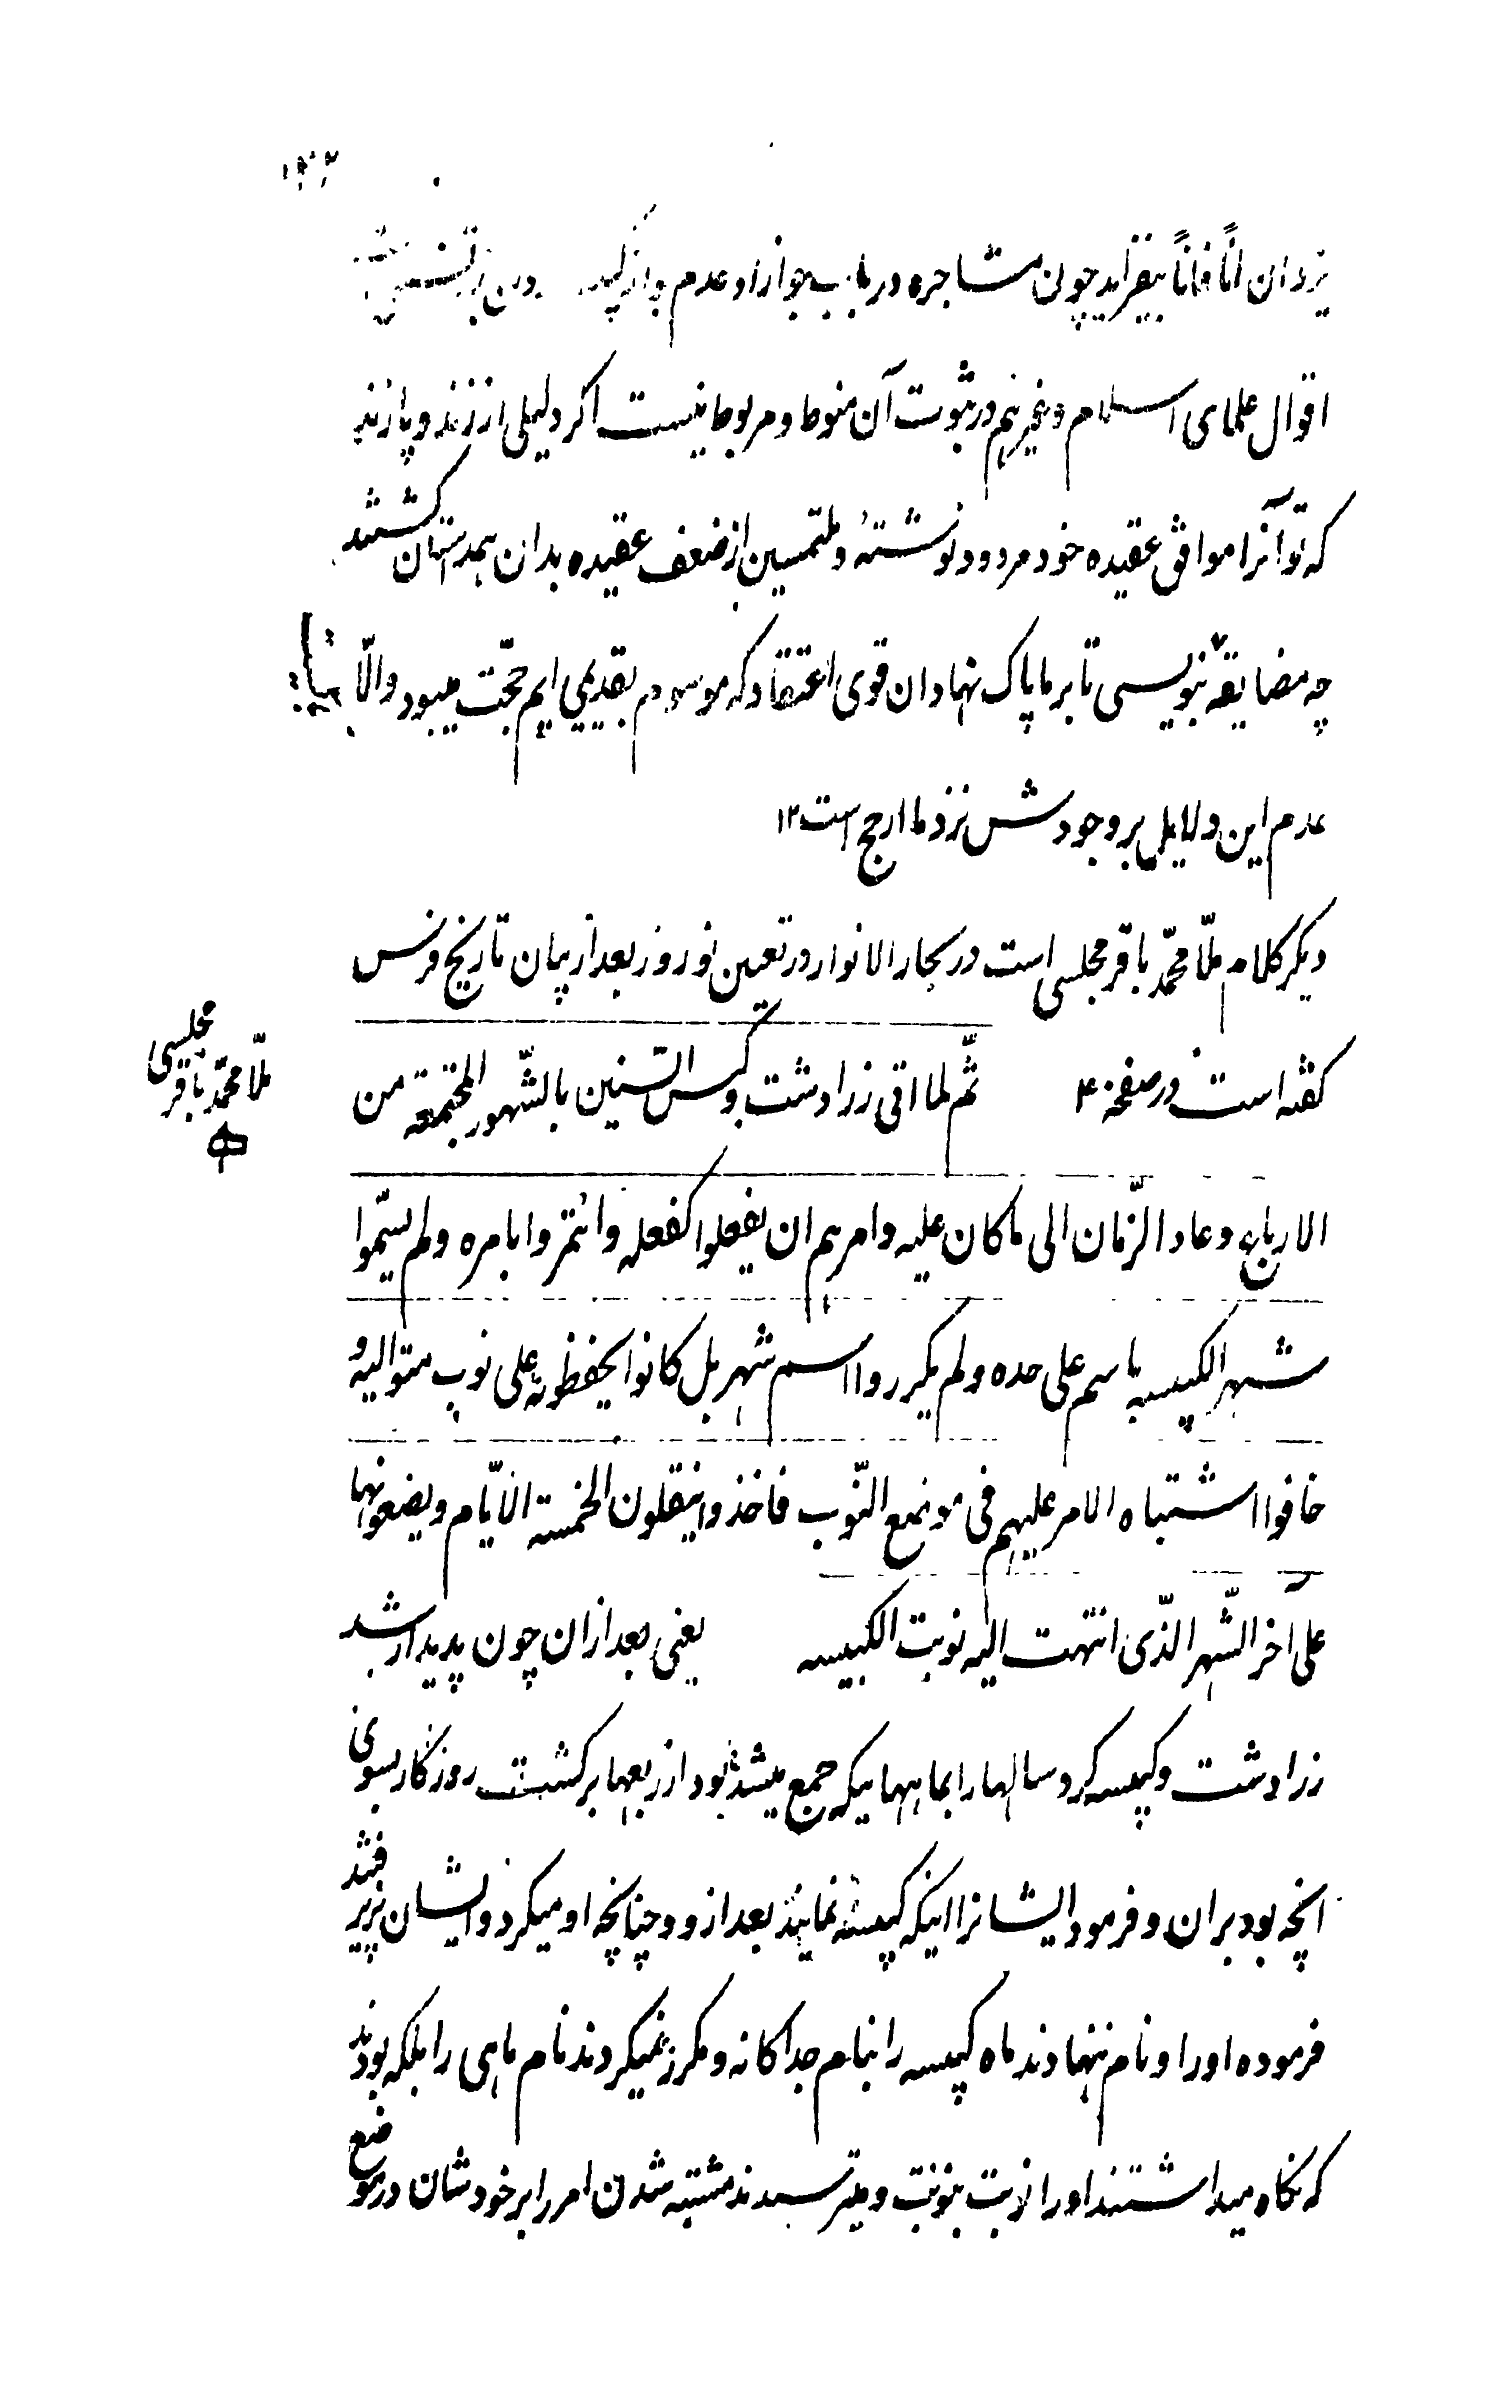 یزدان اناً فاناً بیفزاید چون مشاجره در باب جواز او عدم جواز کبیسه در
اقوال علمای اسلام و غیرهم در ثبوت آن منوط و مربوط نیست اکر دلیلی از زند و پازند
که تو آنرا موافق عقیده خود مردود نوشتهٔ و ملتمسین از ضعف عقیده بدان همدستان کشتند
چه مضایقه بنویسی تا بر ما پاک نهادان قوی اعتقاد که موسوم بقدیمی ایم حجّت میبود والّا
عدم این دلایل بر وجودش نزد ما ارجح است ۱۲
دیکر کلام ملّا محمّد باقر مجلسی است در بحار الانوار در تعین نوروز بعد از بیان تاریخ فرس
کفته است در صفحه ۴ ثمّ لما اتی زرادشت و کبس السّنین بالشّهور المجتمعة من
ملّا محمّد باقر مجلسی
الارباع و عاد الزّمان الی ما کان علیه و امرهم ان یفعلوا کفعله و ائتمروا بامره ولم یسمّوا
شهر الکبیسه باسم علی حده ولم یکرروا اسم شهر بل کانوا یحفظونه علی نوب متوالیه و
خافوا اشتباه الامر علیهم فی موضع النّوب فاخذوا ینقلون الخمسة الایّام و یضعونها
علی آخر الشّهر الذّی انتهت الیه نوبت الکبیسه یعنی بعد ازان چون پدیدار شد
زرادشت و کبیسه کرد سالها را بماههاییکه جمع میشد بود از ربعها برکشت روزکار بسوی
انچه بود بران و فرمود ایشانرا اینکه کبیسه نمایند بعد ازو چنانچه او میکرد و ایشان پزیرفتند
فرموده او را و نام ننهادند ماه کبیسه را بنام جداکانه و مکرر نمیکردند نام ماهی را بلکه بودند
که نکاه میداشتند او را نوبت بنوبت و میترسیدند مشتبه شدن امر را بر خودشان در موضع